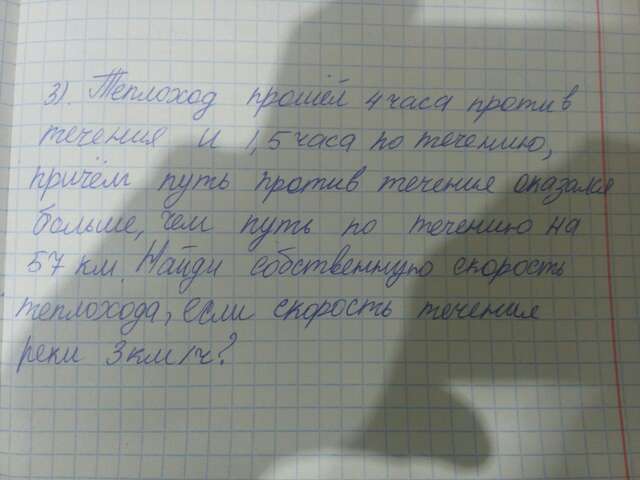 3). Теплоход прошёл 4 часа против
течения и 1,5 часа по течению,
причём путь против течения оказался
больше, чем путь по течению на
57 км. Найди собственную скорость
теплохода, если скорость течения
реки 3 км/ч?